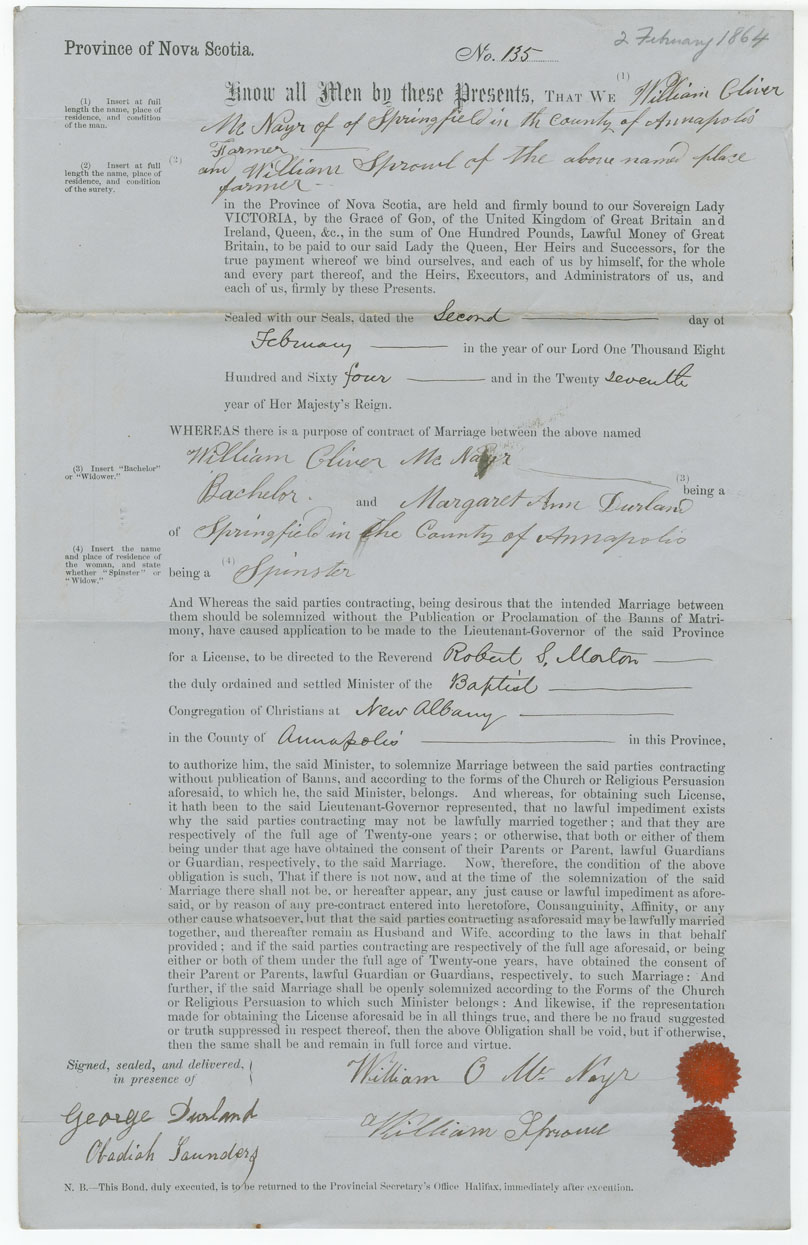 2 February 1864
Province of Nova Scotia.
No. 135
(1) Insert at full
length the name, place of
residence, and condition
of the man.
Know all Men by these Presents, THAT WE (1) William Oliver
Mc Nayr of of Springfield in th county of Annapolis
Farmer
(2) Insert at full
length the name, place of
residence, and condition
of the surety.
(2) and William Sprowl of the above named place
farmer
in the Province of Nova Scotia, are held and firmly bound to our Sovereign Lady
VICTORIA, by the Grace of GOD, of the United Kingdom of Great Britain and
Ireland, Queen, &c., in the sum of One Hundred Pounds, Lawful Money of Great
Britain, to be paid to our said Lady the Queen, Her Heirs and Successors, for the
true payment whereof we bind ourselves, and each of us by himself, for the whole
and every part thereof, and the Heirs, Executors, and Administrators of us, and
each of us, firmly by these Presents.
Sealed with our Seals, dated the Second day of
February in the year of our Lord One Thousand Eight
Hundred and Sixty four and in the Twenty seventh
year of Her Majesty's Reign.
WHEREAS there is a purpose of contract of Marriage between the above named
William Oliver Mc Nayr
(3) Insert "Bachelor"
or "Widower."
(3) being a
Bachelor. and Margaret Ann Durland
of Springfield in the County of Annapolis
(4) Insert the name
and place of residence of
the woman, and state
whether "Spinster" or
"Widow."
being a (4) Spinster
And Whereas the said parties contracting, being desirous that the intended Marriage between
them should be solemnized without the Publication or Proclamation of the Banns of Matri-
mony, have caused application to be made to the Lieutenant-Governor of the said Province
for a License, to be directed to the Reverend Robert S. Morton
the duly ordained and settled Minister of the Baptist
Congregation of Christians at New Albany
in the County of Annapolis in this Province,
to authorize him, the said Minister, to solemnize Marriage between the said parties contracting
without publication of Banns, and according to the forms of the Church or Religious Persuasion
aforesaid, to which he, the said Minister, belongs. And whereas, for obtaining such License,
it hath been to the said Lieutenant-Governor represented, that no lawful impediment exists
why the said parties contracting may not be lawfully married together; and that they are
respectively of the full age of Twenty-one years; or otherwise, that both or either of them
being under that age have obtained the consent of their Parents or Parent, lawful Guardians
or Guardian, respectively, to the said Marriage. Now, therefore, the condition of the above
obligation is such, That if there is not now, and at the time of the solemnization of the said
Marriage there shall not be, or hereafter appear, any just cause or lawful impediment as afore-
said, or by reason of any pre-contract entered into heretofore, Consanguinity, Affinity, or any
other cause whatsoever, but that the said parties contracting as aforesaid may be lawfully married
together, and thereafter remain as Husband and Wife, according to the laws in that behalf
provided; and if the said parties contracting are respectively of the full age aforesaid, or being
either or both of them under the full age of Twenty-one years, have obtained the consent of
their Parent or Parents, lawful Guardian or Guardians, respectively, to such Marriage: And
further, if the said Marriage shall be openly solemnized according to the Forms of the Church
or Religious Persuasion to which such Minister belongs: And likewise, if the representation
made for obtaining the License aforesaid be in all things true, and there be no fraud suggested
or truth suppressed in respect thereof, then the above Obligation shall be void, but if otherwise,
then the same shall be and remain in full force and virtue.
Signed, sealed, and delivered,
in presence of
William O Mc Nayr
George Durland
William Sprowl
Obadiah Saunders
N. B.—This Bond, duly executed, is to be returned to the Provincial Secretary's Office Halifax, immediately after execution.